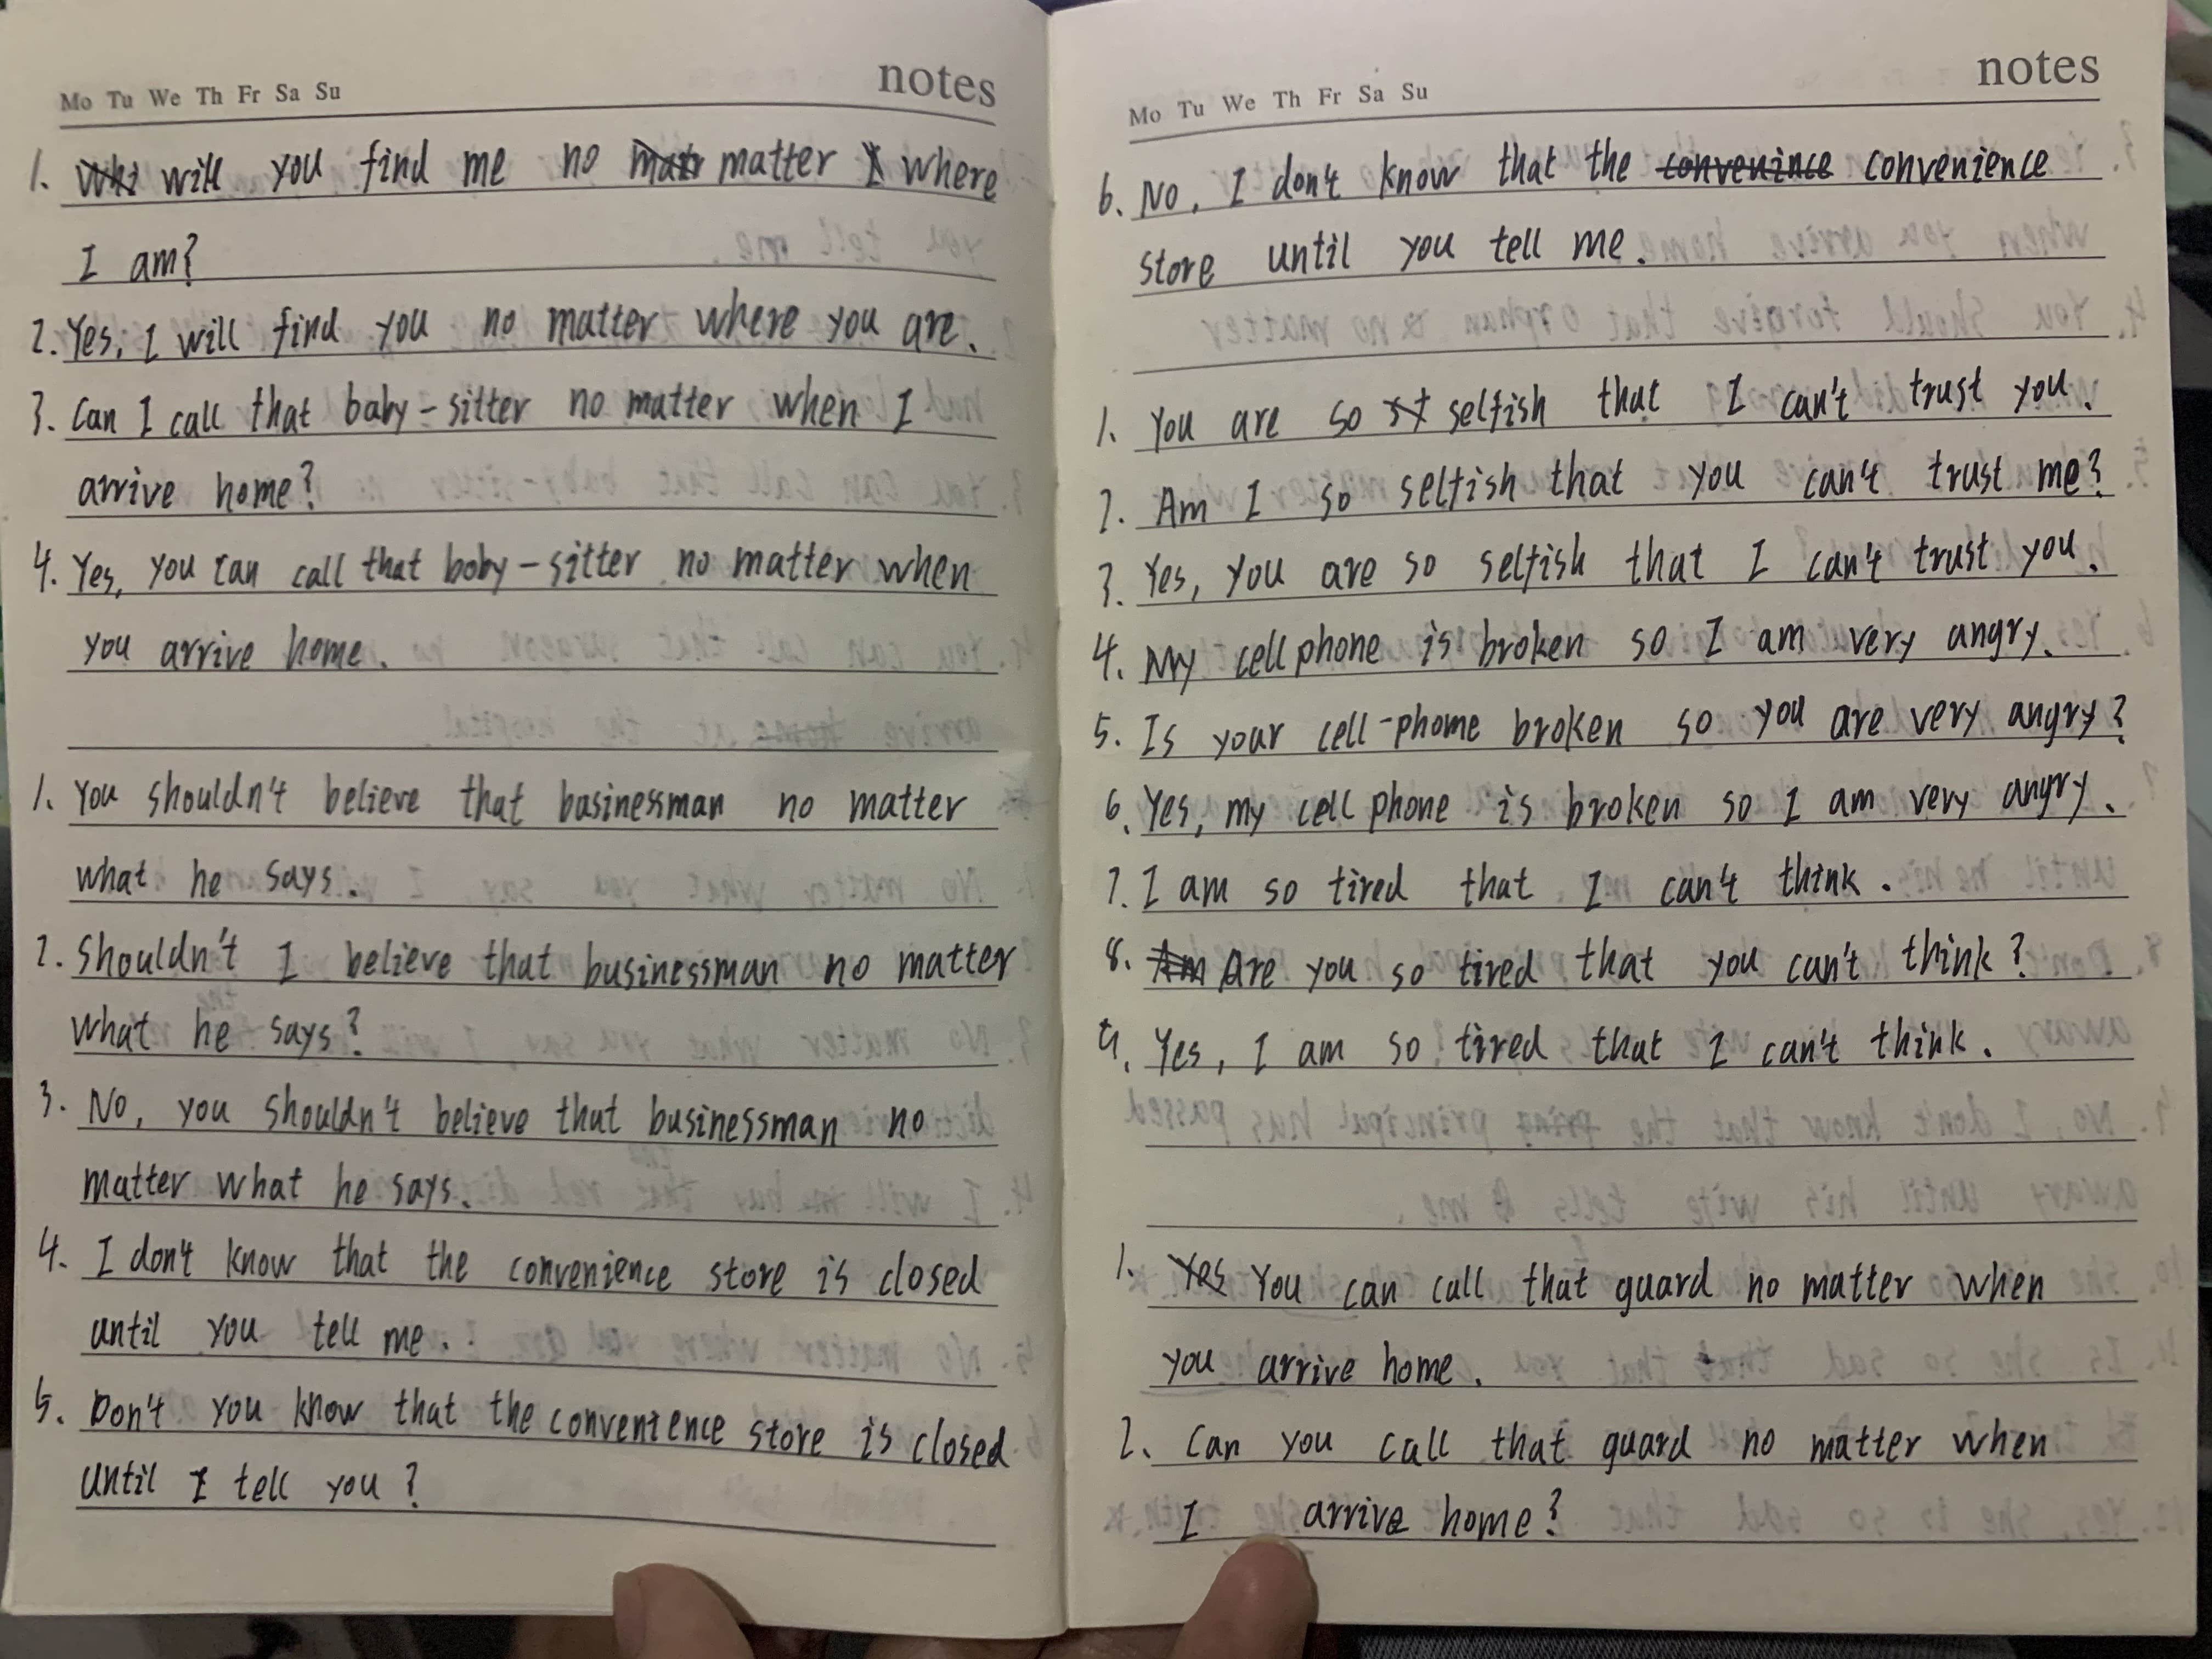 Mo Tu We Th Fr Sa Su notes
1. will you find me no matter where
I am?
2. Yes, I will find you no matter where you are.
3. Can I call that baby-sitter no matter when I
arrive home?
4. Yes, you can call that boby-sitter no matter when
you arrive home.
1. You shouldn't believe that businessman no matter
what he says.
2. Shouldn't I believe that businessman no matter
what he says?
3. No, you shouldn't believe that businessman no
matter what he says.
4. I don't know that the convenience store is closed
until you tell me.
5. Don't you know that the convenience store is closed
until I tell you?
Mo Tu We Th Fr Sa Su notes
6. No, I don't know that the convenince convenience
store until you tell me.
1. You are so selfish that I can't trust you.
2. Am I so selfish that you can't trust me?
3. Yes, you are so selfish that I can't trust you.
4. My cell phone is broken so I am very angry.
5. Is your cell-phome broken so you are very angry?
6. Yes, my cell phone is broken so I am very angry.
7. I am so tired that I can't think.
8. Am Are you so tired that you can't think?
9. Yes, I am so tired that I can't think.
1. Yes You can call that guard no matter when
you arrive home.
2. Can you call that guard no matter when
I arrive home?